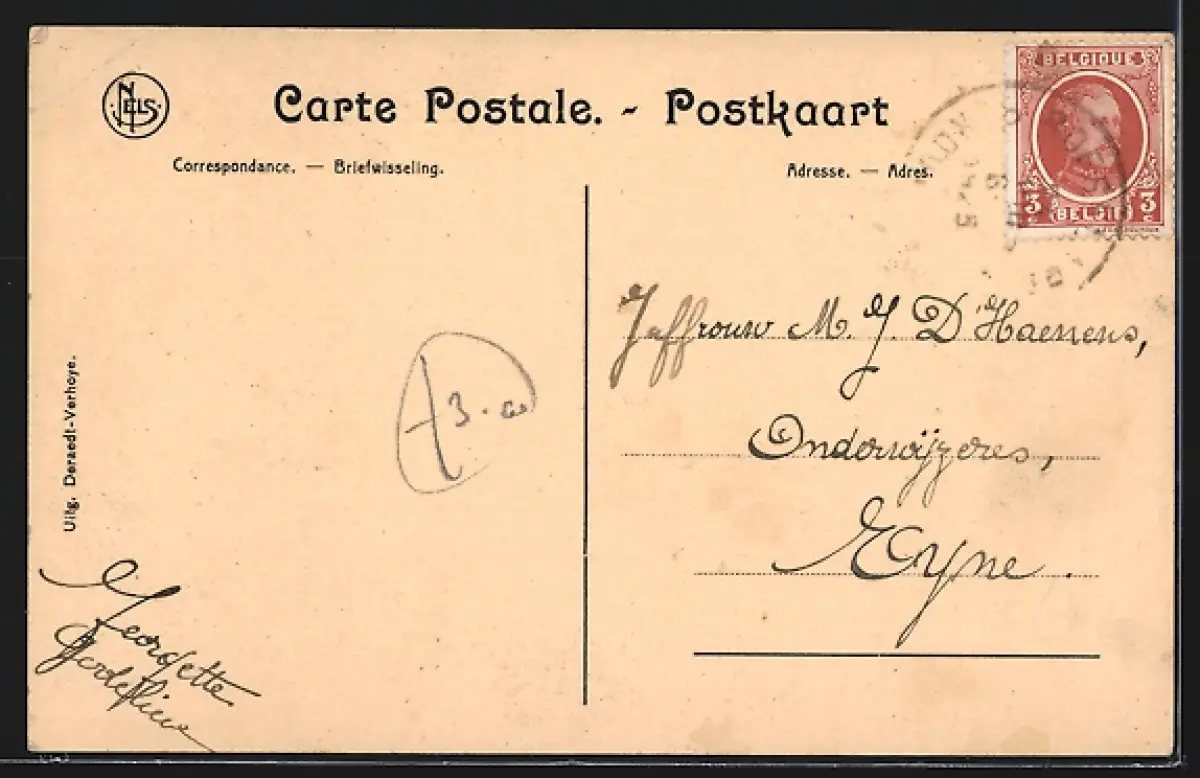 NELS
Carte Postale. - Postkaart
Correspondance. — Briefwisseling.
Adresse. — Adres.
BELGIQUE
3 BELGIË 3
Juffrouw M. J. D'Haenens,
Onderwijzeres,
Eyne.
3.
Uitg. Deraedt-Verhoye.
Georgette
Godelieve